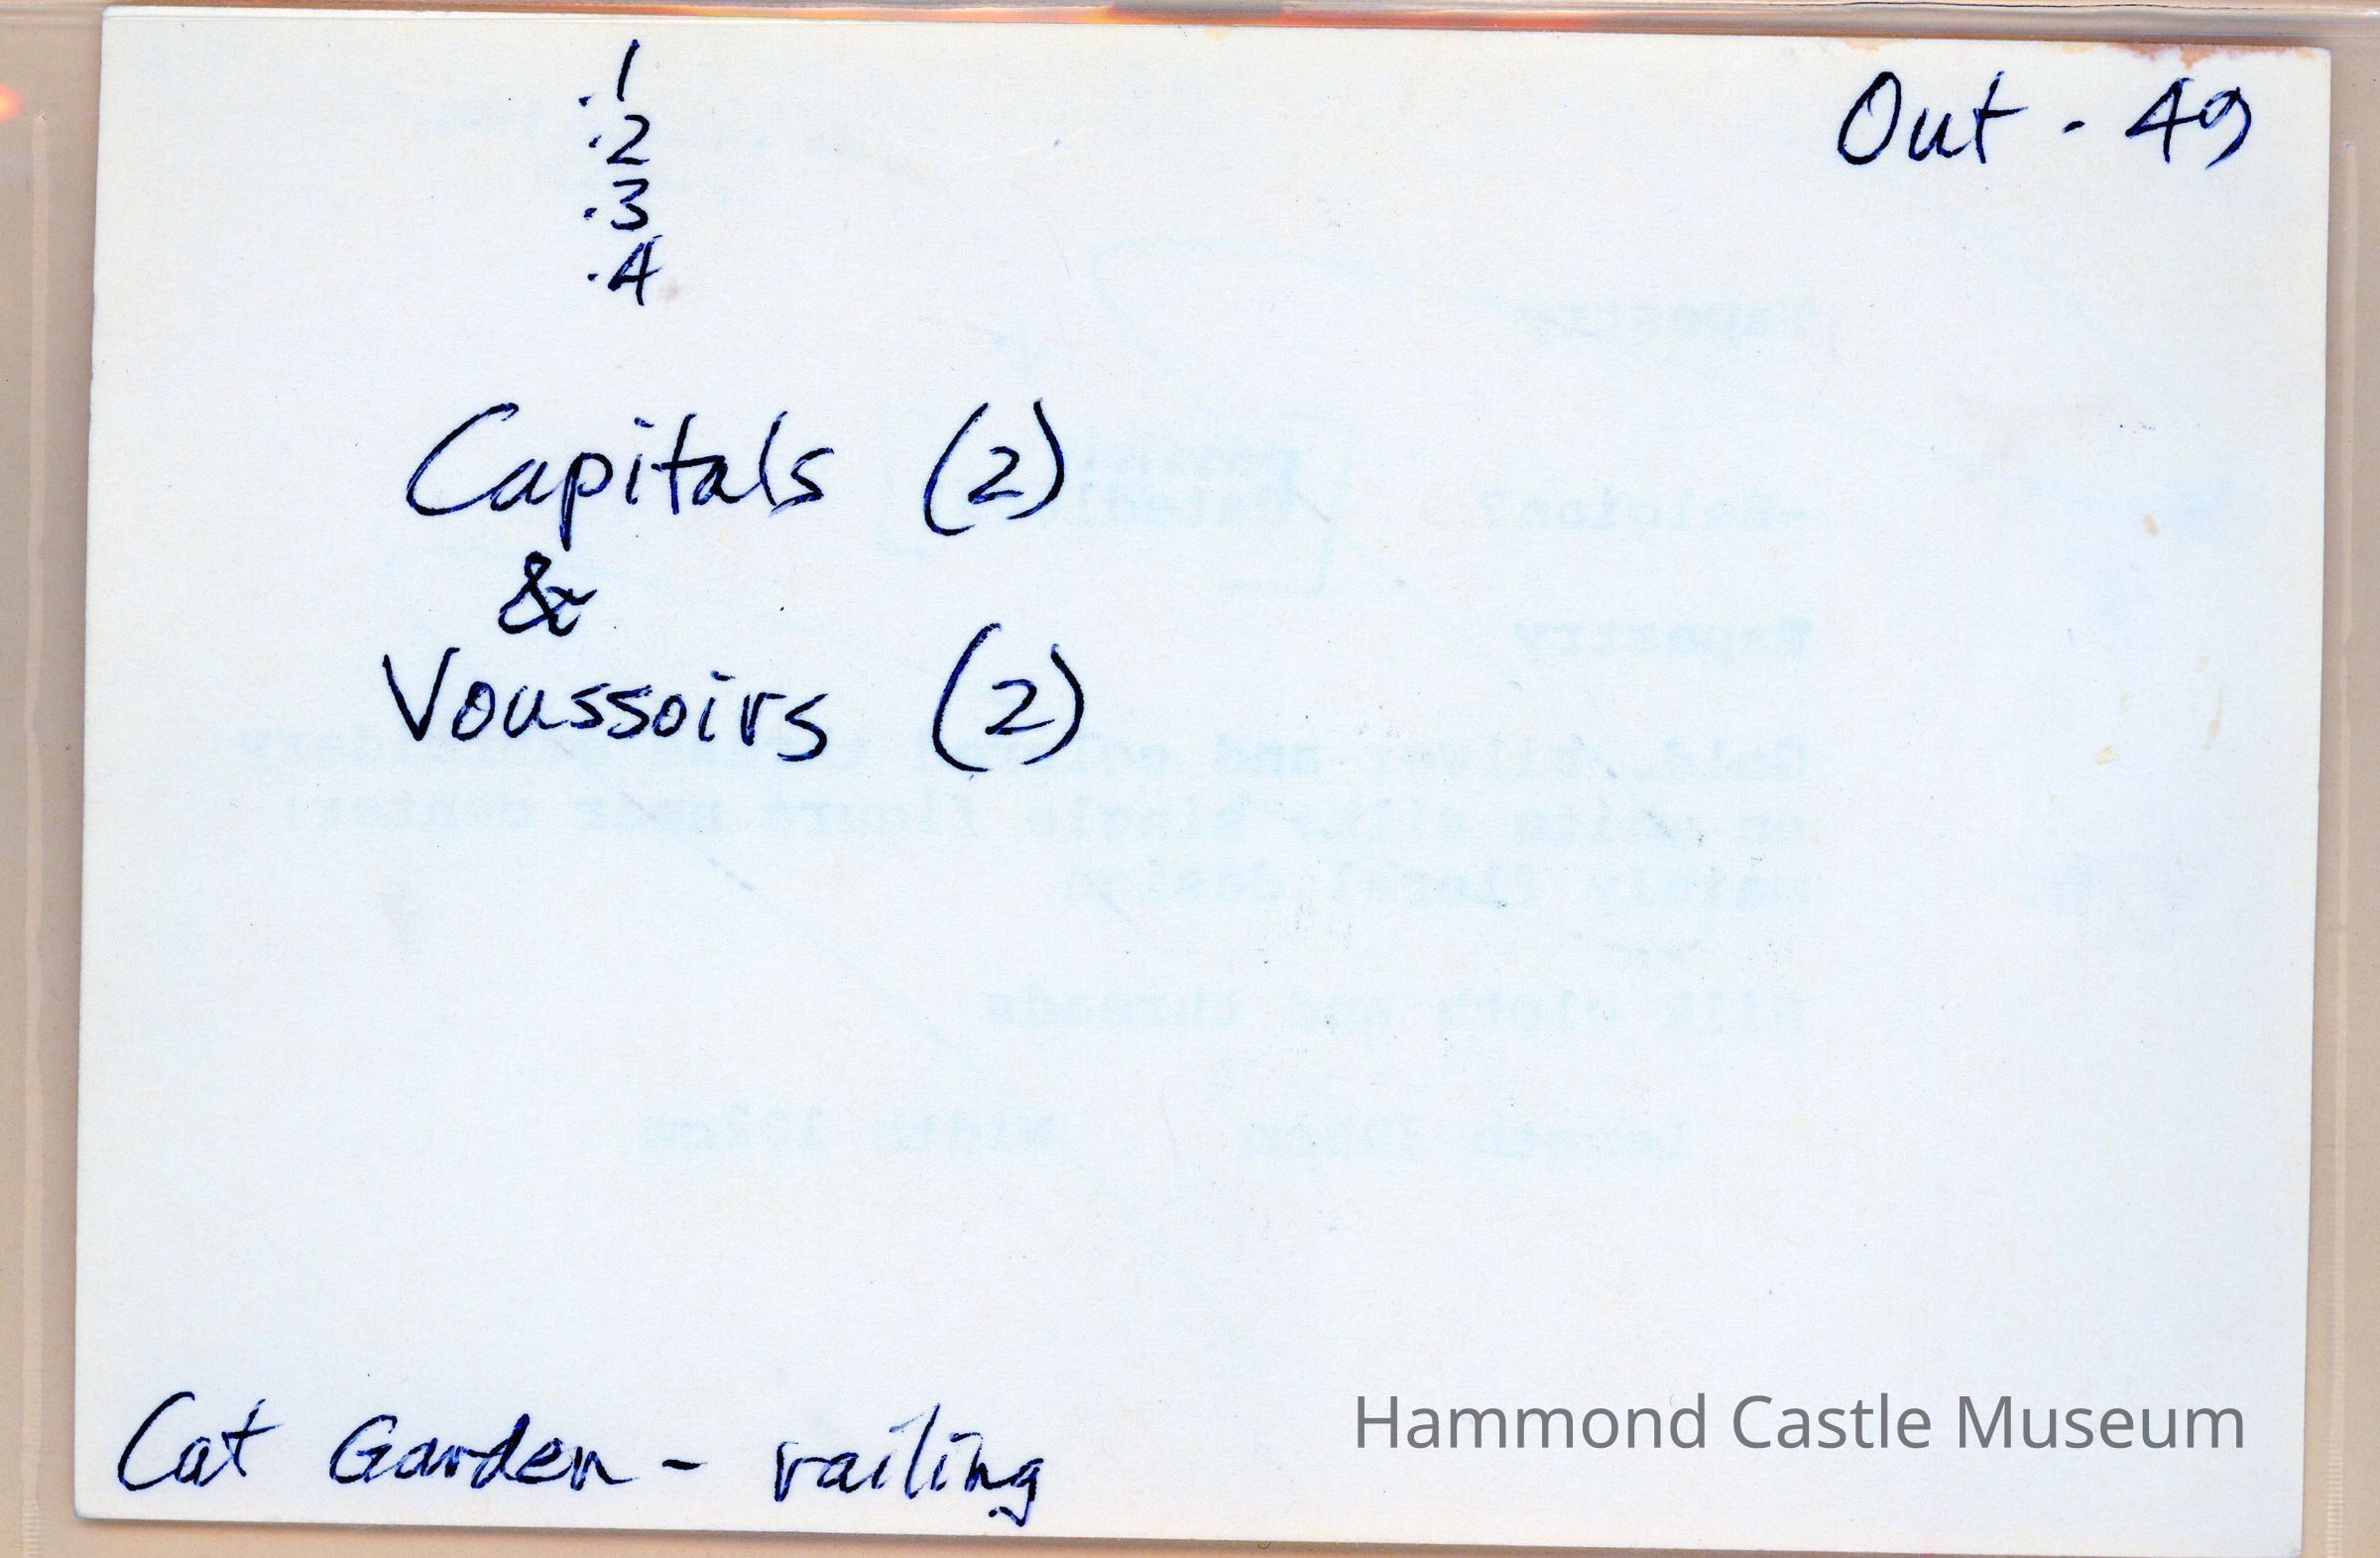 .1
.2
.3
.4
Out - 49
Capitals (2)
&
Voussoirs (2)
Cat Garden - railing
Hammond Castle Museum